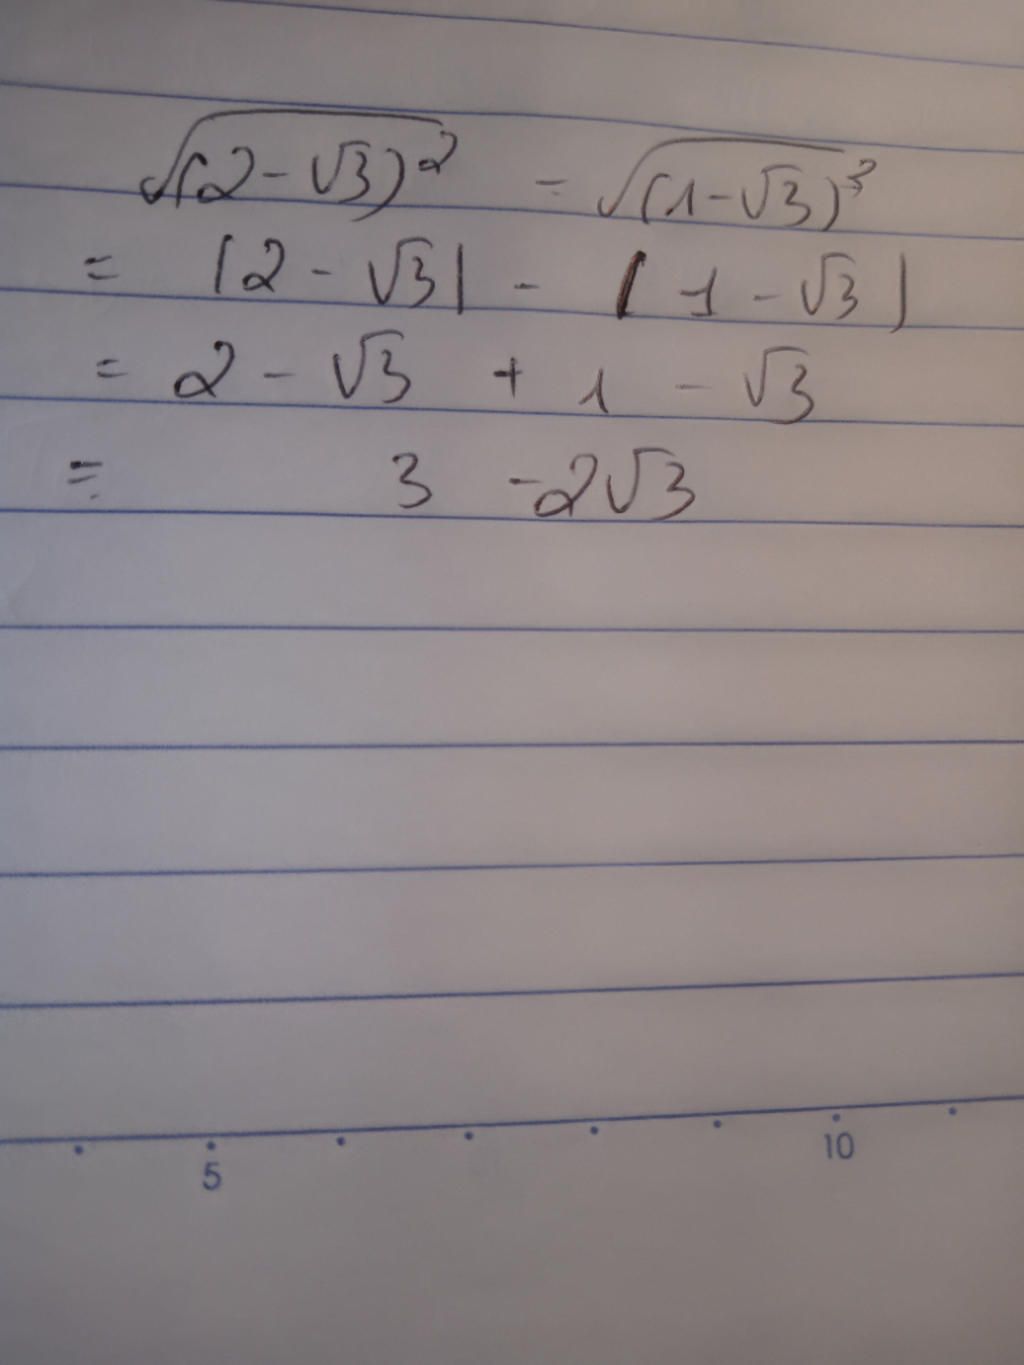 √(2-√3)² = √(1-√3)³
= |2-√3| - |1-√3|
= 2 - √3 + 1 - √3
= 3 -2√3
5 10